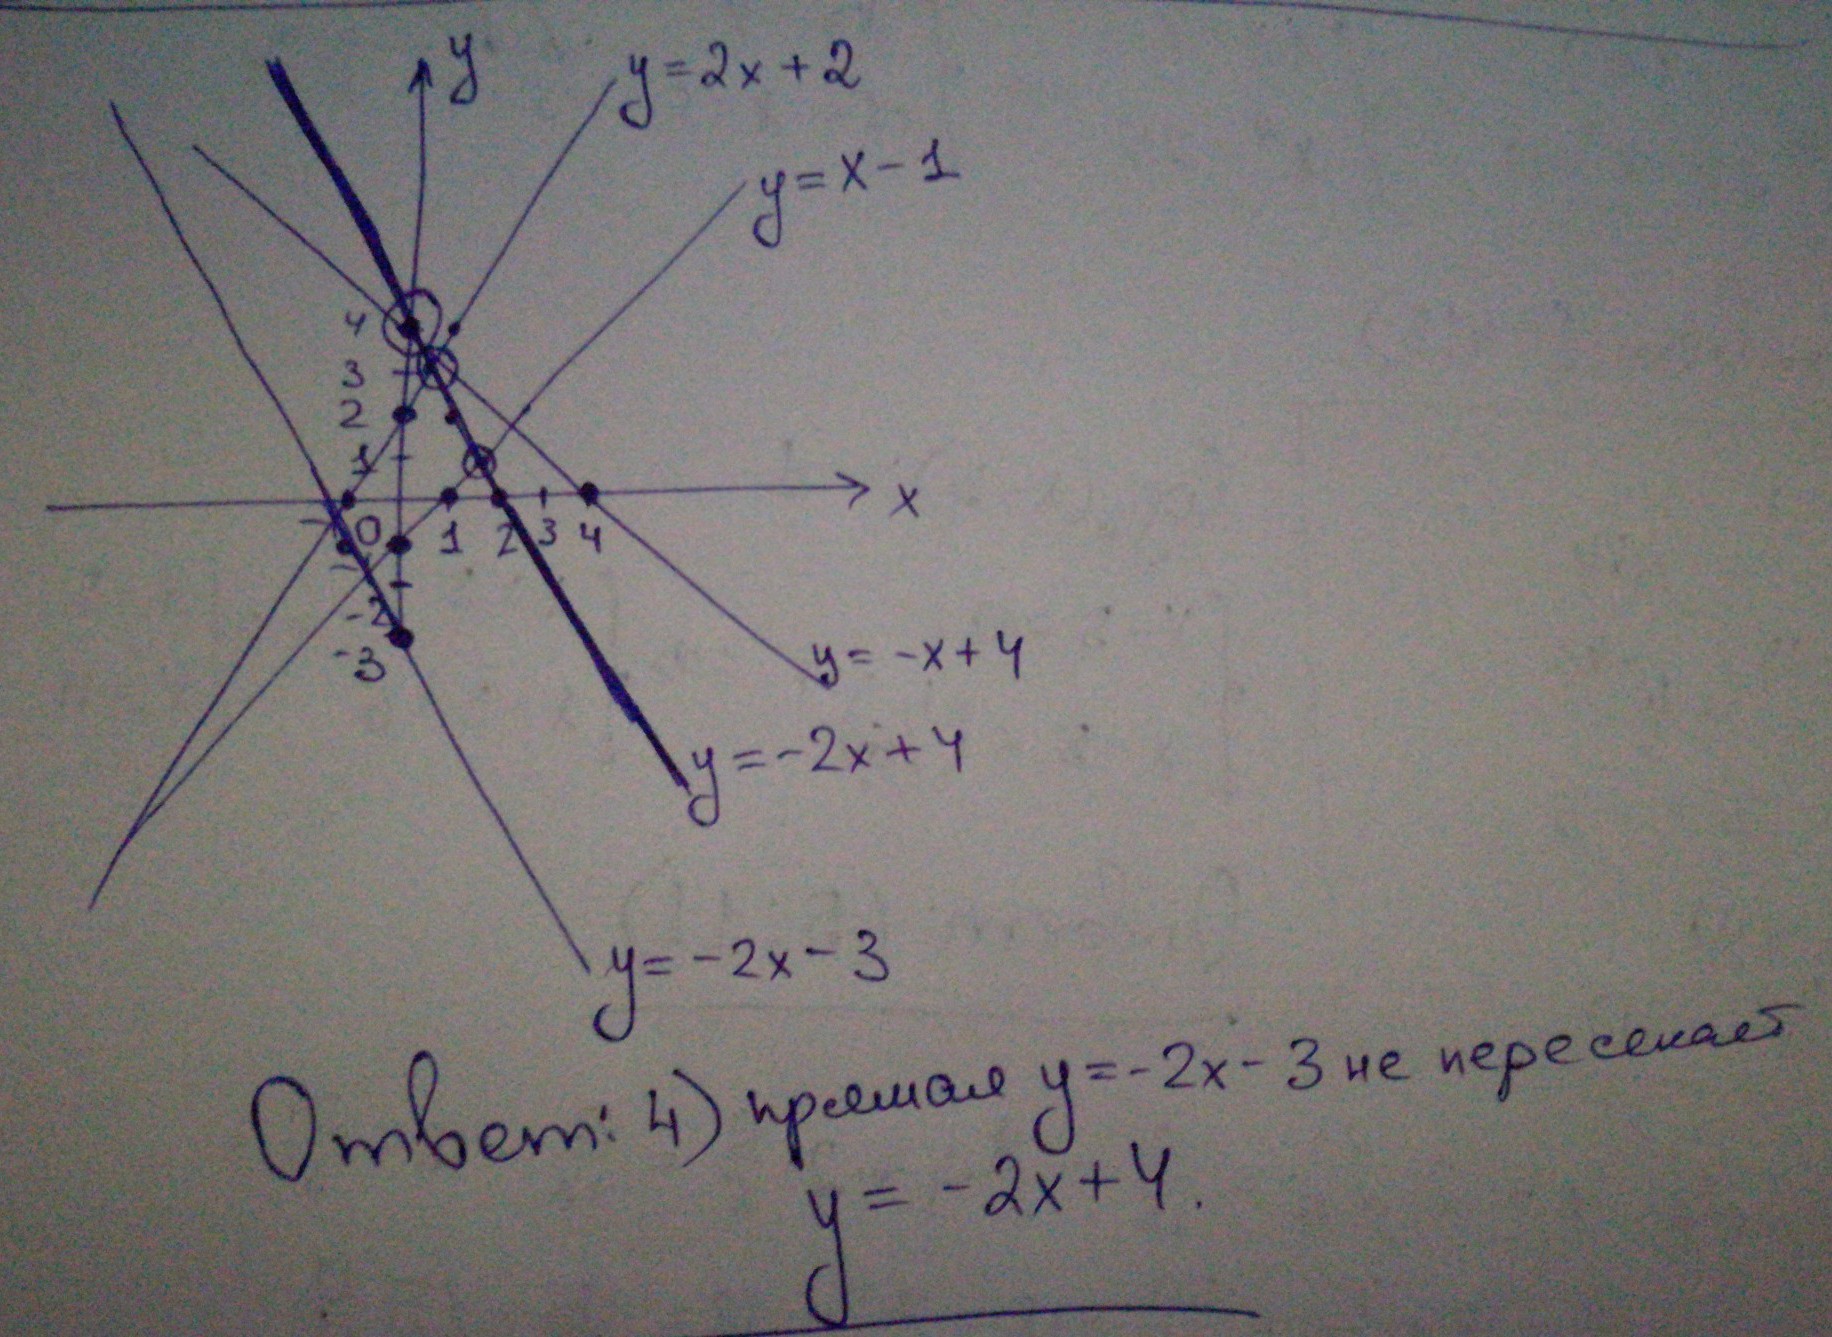 y
y=2x+2
y=x-1
4
3
2
1
0 1 2 3 4
x
-1
-2
-3
y=-x+4
y=-2x+4
y=-2x-3
Ответ: 4) прямая y=-2x-3 не пересекает
y=-2x+4.